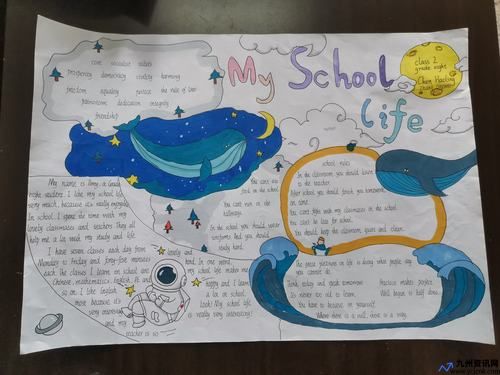 My School Life
class 2
grade eight
core socialist values
prosperity democracy civility harmony
freedom equality justice the rule of law
patriotism dedication integrity
friendship
My name is Amy, a Grade
eight student. I like my school life
very much, because it's really enjoyable.
In school, I spend the time with my
lovely classmates and teachers. They all
help me a lot with my study and life.
I have seven classes each day from
Monday to Friday and forty-five minutes
each. The classes I learn on school are
Chinese, mathematics, English, PE and
so on. I like English
most because it's
very interesting
and my
teacher is so
lovely and
kind. In one word,
my school life makes me
happy and I learn
a lot on school.
Look! My school life
is really very interesting!
You can't eat
food in the school.
You can't run in the
hallways.
In the school you should wear
uniforms. And you should
study hard.
school rules
In the classroom, you should listen
to the teacher.
After school you should finish you homework
on time.
You can't fight with my classmates in the school.
You can't be late for school.
You should keep the classroom quiet and clean.
The great pleasure in life is doing what people say
you cannot do.
Think today and speak tomorrow.
Practice makes perfect.
It's never too old to learn.
Well begun is half done.
You have to believe in yourself.
Where there is a will, there is a way.
九州资讯网